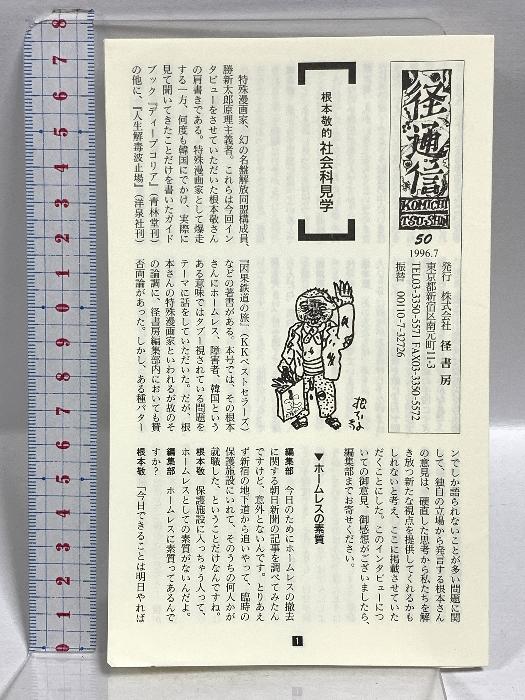 径通信
KOMICHI
TSUSHIN
50
1996.7
発行 株式会社 径書房
東京都新宿区南元町11-3
TEL03-3350-5571 FAX03-3350-5572
振替 00110-7-32726
根本敬的 社会科見学
特殊漫画家、幻の名盤解放同盟構成員、
勝新太郎原理主義者。これらは今回イン
タビューをさせていただいた根本敬さん
の肩書きである。特殊漫画家として爆走
する一方、何度も韓国にでかけ、実際に
見て聞いてきたことだけを書いたガイド
ブック『ディープコリア』(青林堂刊)
の他に、『人生解毒波止場』(洋泉社刊)
『因果鉄道の旅』(KKベストセラーズ)
などの著書がある。本号では、その根本
さんにホームレス、障害者、韓国という
ある意味ではタブー視されている問題を
テーマに話をしていただいた。だが、根
本さんの特殊漫画家といわれるが故のそ
の論調に、径書房編集部内においても賛
否両論があった。しかし、ある種パター
ンでしか語られないことが多い問題に関
して、独自の立場から発言する根本さん
の意見は、硬直した思考から私たちを解
き放つ新たな視点を提供してくれるかも
しれないと考え、ここに掲載させていた
だくことにした。このインタビューにつ
いての御意見、御感想がございましたら、
編集部までお寄せください。
▼ホームレスの素質
編集部 今日のためにホームレスの撤去
に関する朝日新聞の記事を調べてみたん
ですけど、意外とないんです。とりあえ
ず新宿の地下道から追いやって、臨時の
保護施設にいれて、そのうちの何人かが
就職した、ということだけなんですね。
根本敬 保護施設に入っちゃう人って、
ホームレスとしての素質がないんだよ。
編集部 ホームレスに素質ってあるんで
すか?
根本敬 「今日できることは明日やれば
1